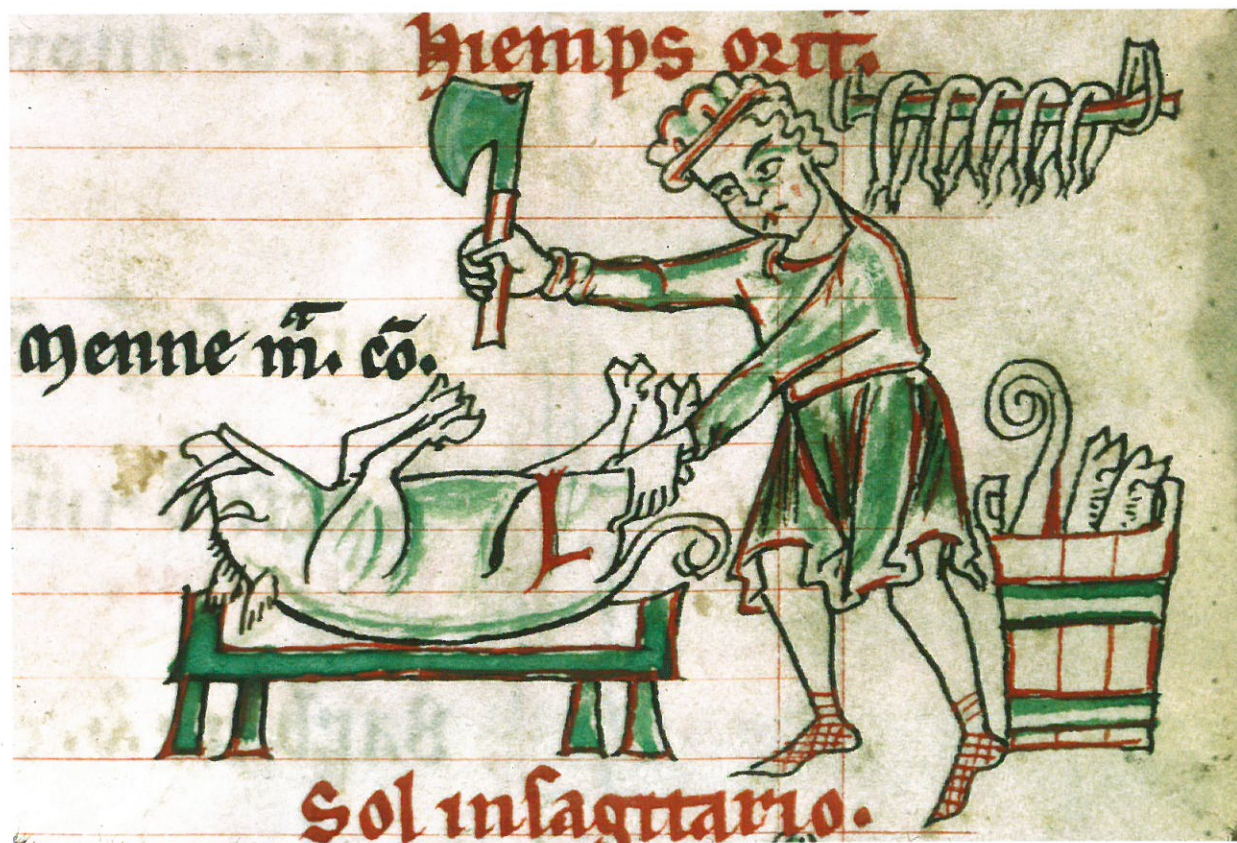 hiemps orit̄.
Menne m̄. cō.
Sol inſagittario.